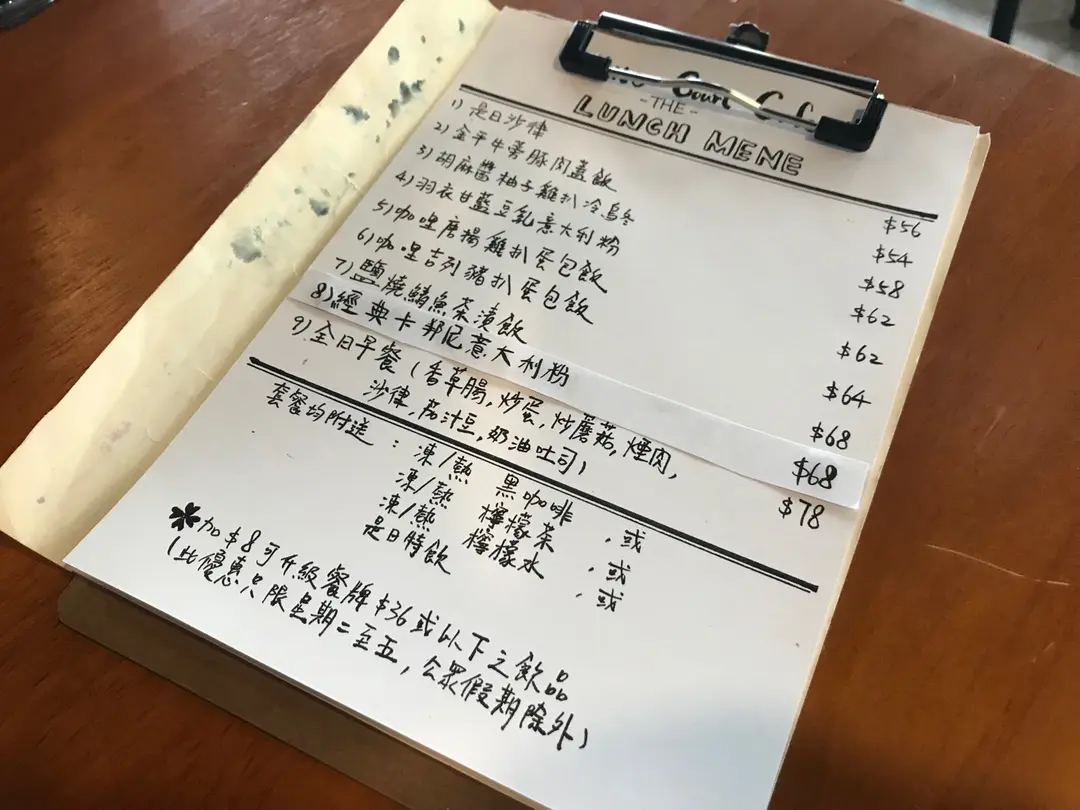 Court
-THE-
LUNCH MENE
1) 是日沙律 $56
2) 金平牛蒡豚肉蓋飯 $54
3) 胡麻醬柚子雞扒冷烏冬 $58
4) 羽衣甘藍豆乳意大利粉 $62
5) 咖哩唐揚雞扒蛋包飯 $62
6) 咖哩吉列豬扒蛋包飯 $64
7) 鹽燒鯖魚茶漬飯 $68
8) 經典卡邦尼意大利粉 $68
9) 全日早餐 (香草腸, 炒蛋, 炒蘑菇, 煙肉, $78
沙律, 茄汁豆, 奶油吐司)
套餐均附送 : 凍/熱 黑咖啡 , 或
凍/熱 檸檬茶 , 或
凍/熱 檸檬水 , 或
是日特飲
加$8可升級餐牌$36或以下之飲品
(此優惠只限星期二至五, 公眾假期除外)